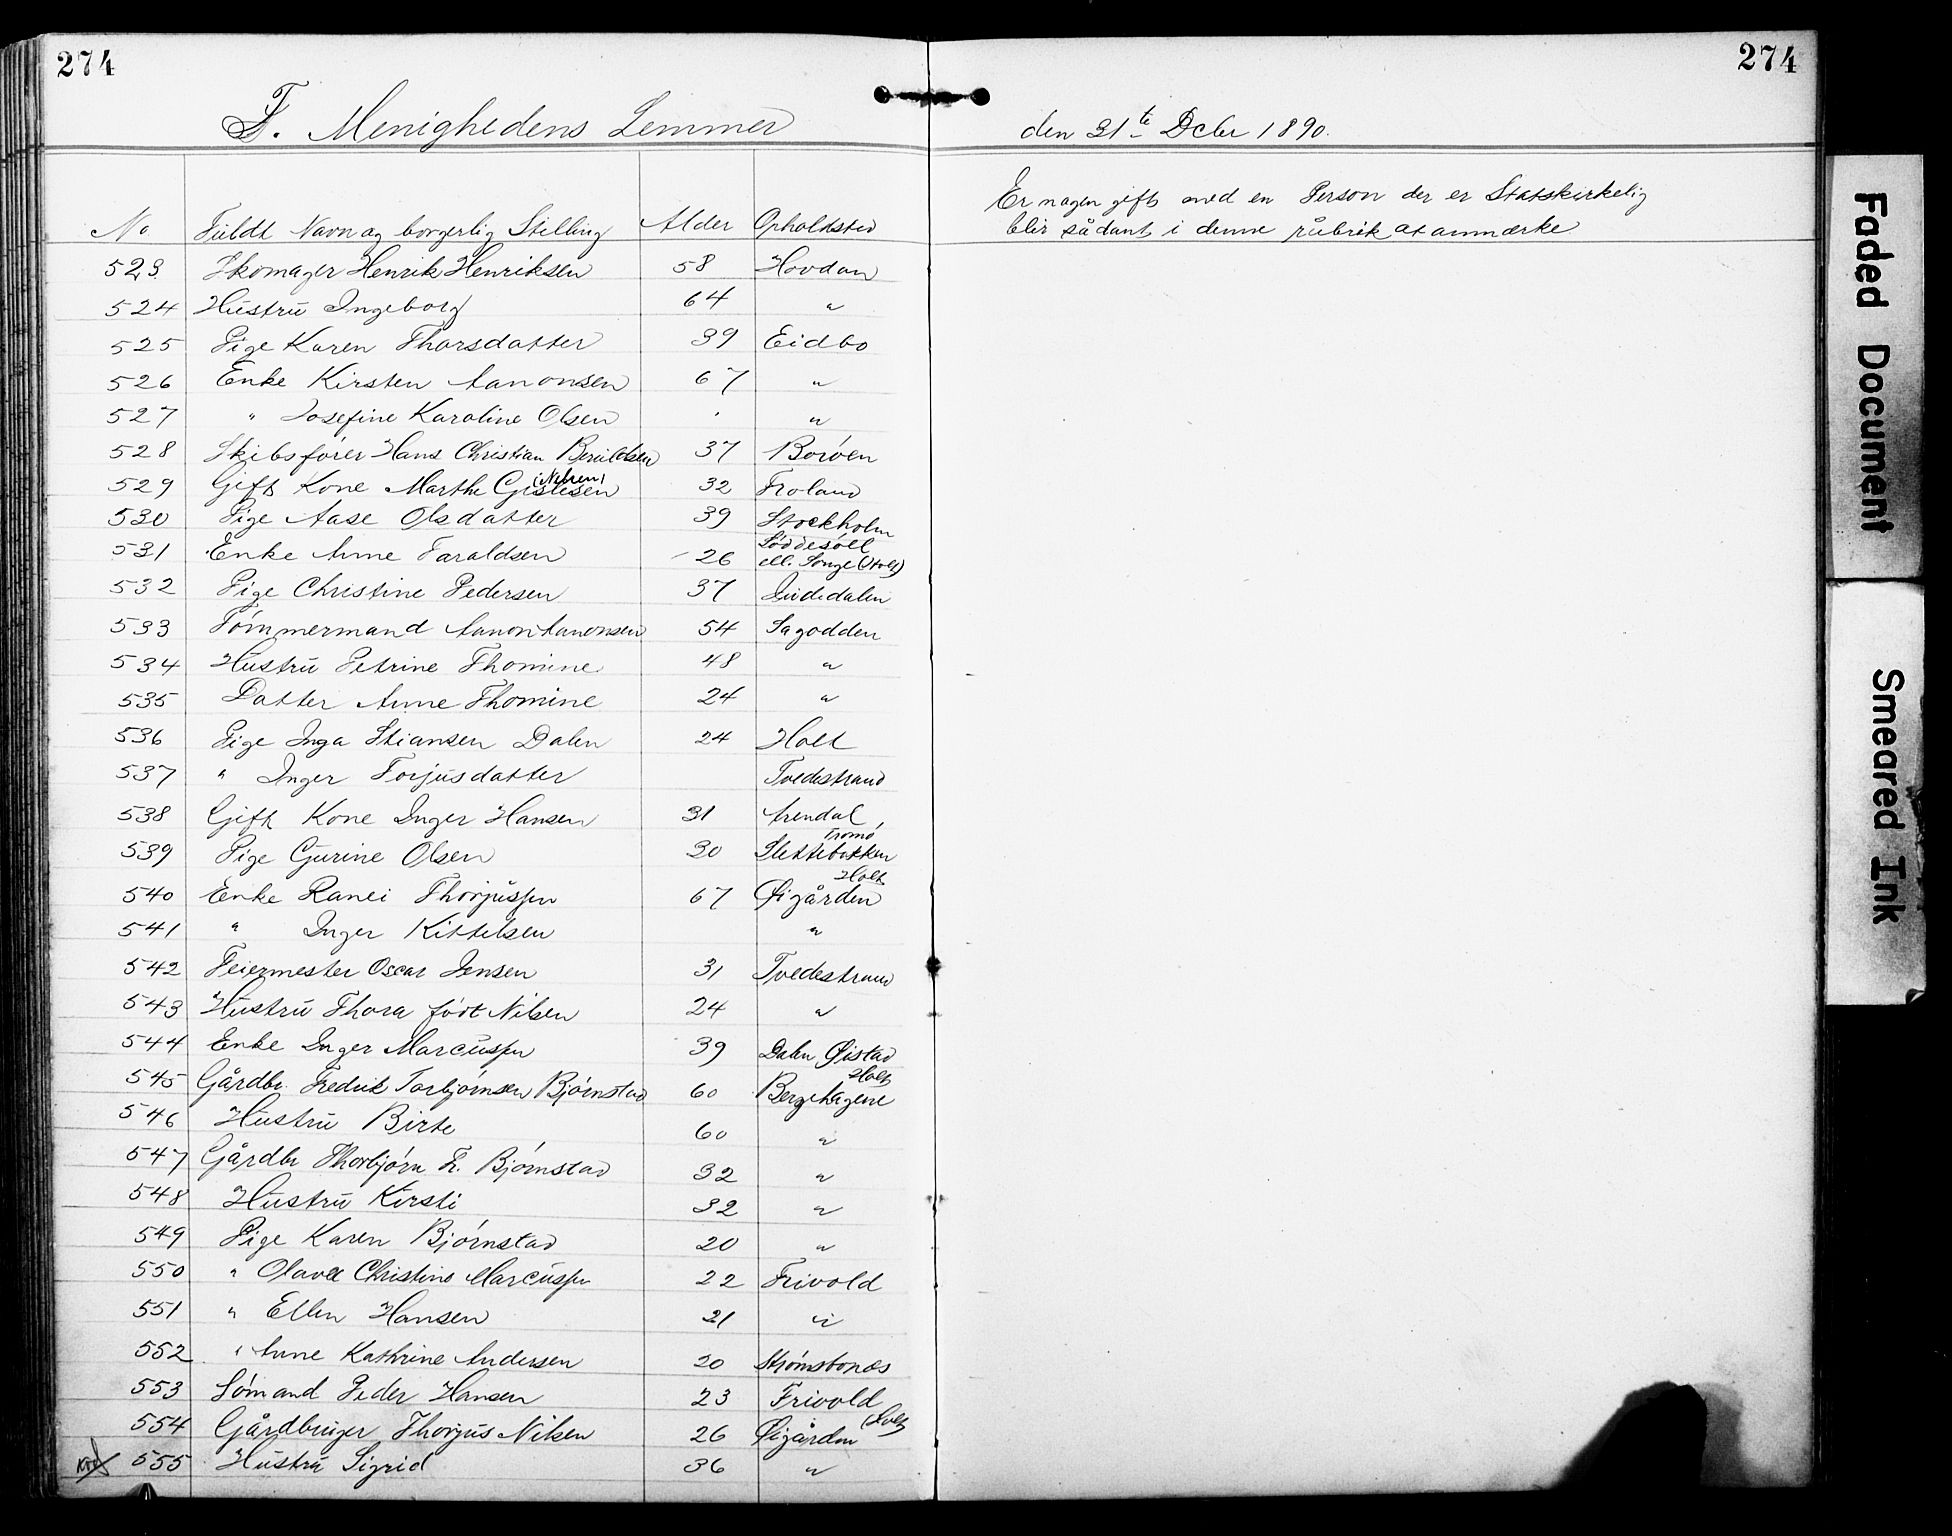 274
274
F. Menighedens Lemmer
den 31te Dcbr 1890.
Er nogen gift med en Person der er Statskirkelig
blir sådant i denne rubrik at anmærke
No Fuldt Navn og borgerlig Stilling Alder Opholdsted
523 Skomager Henrik Henriksen 58 Hovdan
524 Hustru Ingeborg 64 "
525 Pige Karen Tharsdatter 39 Eidbo
526 Enke Kirsten Aanonsen 67 "
527 " Josefine Karoline Olsen "
528 Skibsfører Hans Christian 37 Borøen
529 Gift Kone Marthe (Nilsen) 32 Froland
530 Pige Aase Olsdatter 39 Stockholm
531 Enke Anne Taraldsen 26 ell. Songe (Holt)
532 Pige Christine Pedersen 37
533 Tømmermand Aanon Aanonsen 54 Sagodden
534 Hustru Petrine Thomine 48 "
535 Datter Anne Thomine 24 "
536 Pige Inga Stiansen Dalen 24 Holt
537 " Inger Torjusdatter Tvedestrand
538 Gift Kone Inger Hansen 31 Arendal
539 Pige Gurine Olsen 30 Slettebakken Tromø
540 Enke Ranei Thorjussen 67 Øigården Holt
541 " Inger Kittelsen "
542 Feiermester Oscar Jensen 31 Tvedestrand
543 Hustru Thora født Nilsen 24 "
544 Enke Inger Marcussen 39 Dalen Øistad
545 Gårdbr. Fredrik Torbjørnsen Bjørnstad 60 Bergehagene Holt
546 Hustru Birte 60 "
547 Gårdbr Thorbjørn F. Bjørnstad 32 "
548 Hustru Kirsti 32 "
549 Pige Karen Bjørnstad 20 "
550 " Olava Christine Marcussen 22 Frivold
551 " Ellen Hansen 21 "
552 " Anne Kathrine Andersen 20 Strømsbonæs
553 Sømand Peder Hansen 23 Frivold
554 Gårdbruger Thorjus Nilsen 26 Øigården (Holt)
555 Hustru Sigrid 36 "
Faded Document
Smeared Ink